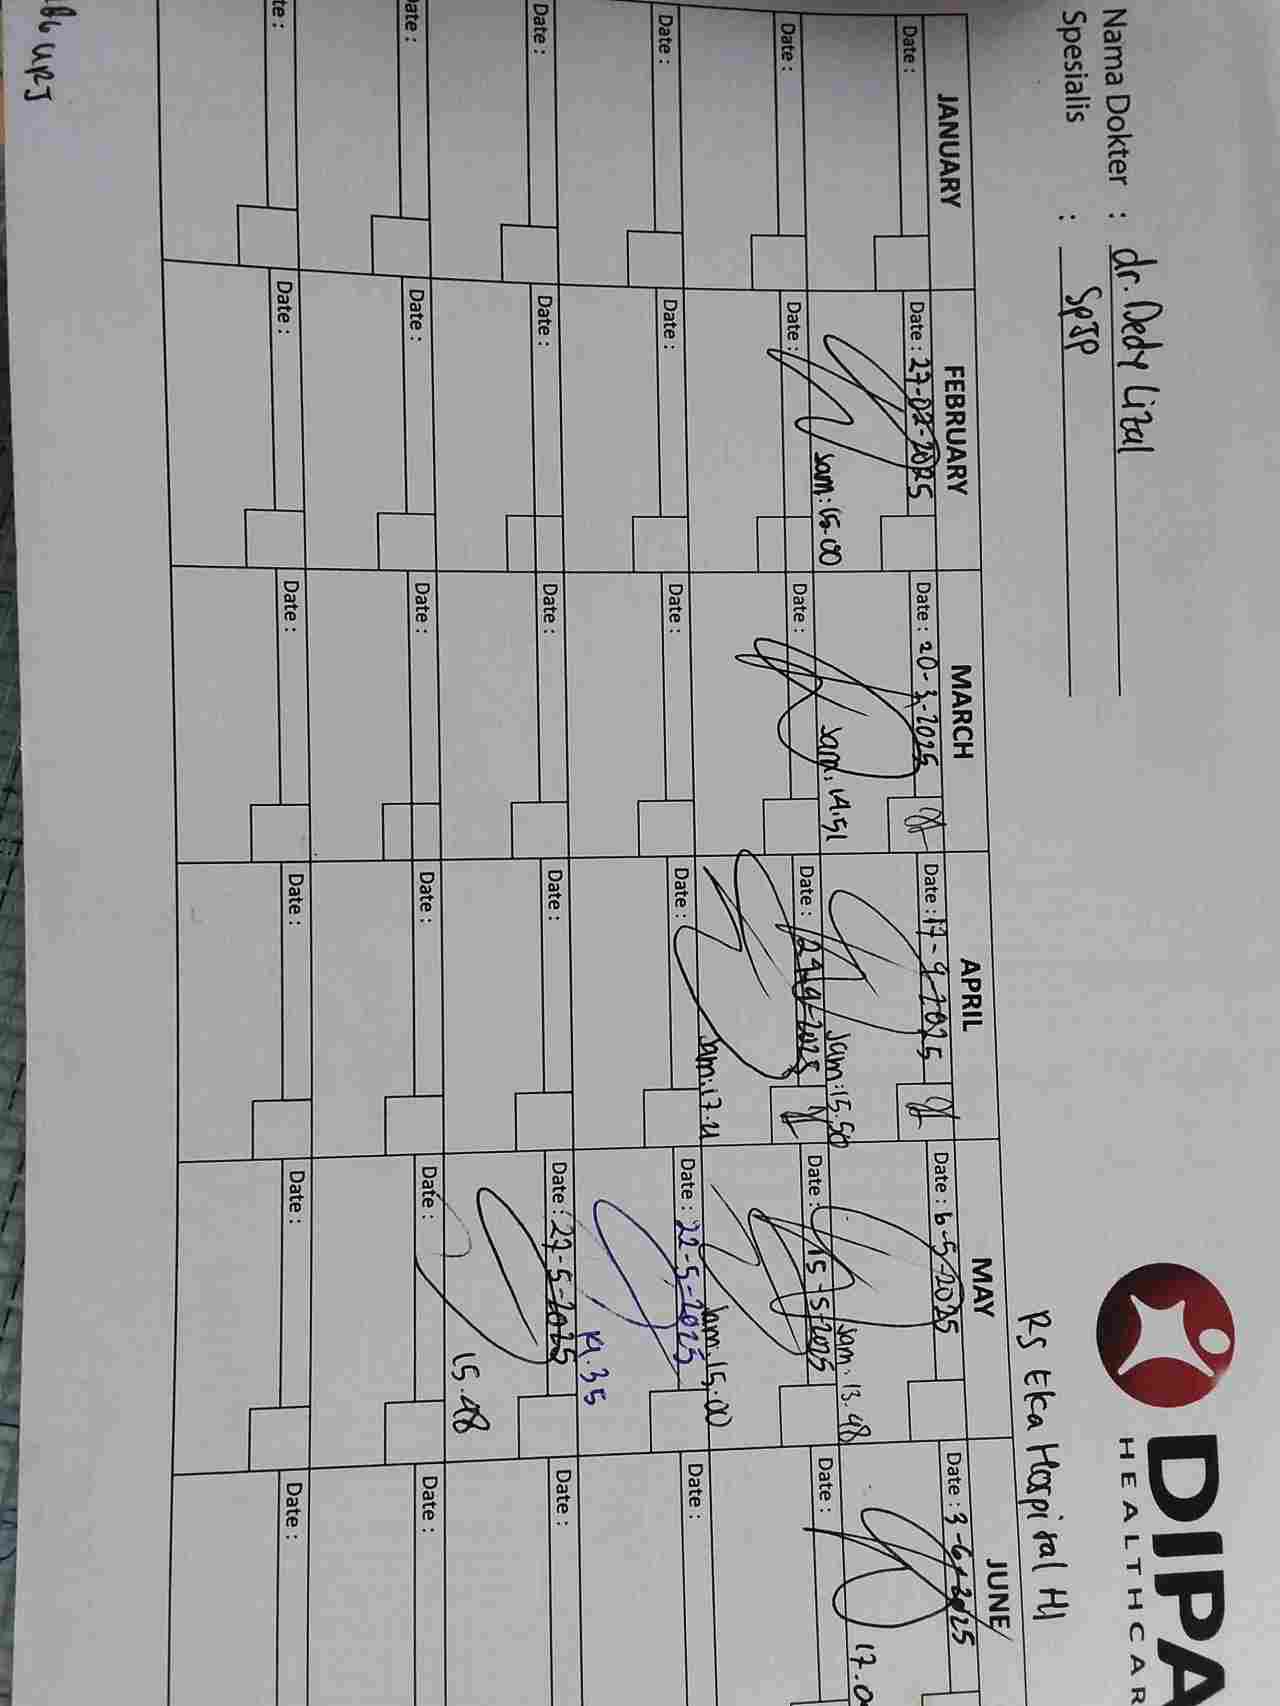 DIPA
HEALTHCAR
Nama Dokter : dr. Dedy Lizal
Spesialis : SpJP
RS Eka Hospital
JANUARY FEBRUARY MARCH APRIL MAY JUNE
Date : Date : 27-02-2025 Date : 20-3-2025 Date : 17-4-2025 Date : 6-5-2025 Date : 3-6-2025
Jam: 15.00 Jam: 14.51 Jam: 15.50 Jam: 13.48 17.0
Date : Date : Date : Date : Date : 15-5-2025 Date :
Jam: 15.00
Date : Date : Date : Date : Date : 22-5-2025 Date :
14.35
Date : Date : Date : Date : Date : 27-5-2025 Date :
15.48
Date : Date : Date : Date : Date : Date :
te : Date : Date : Date : Date : Date :